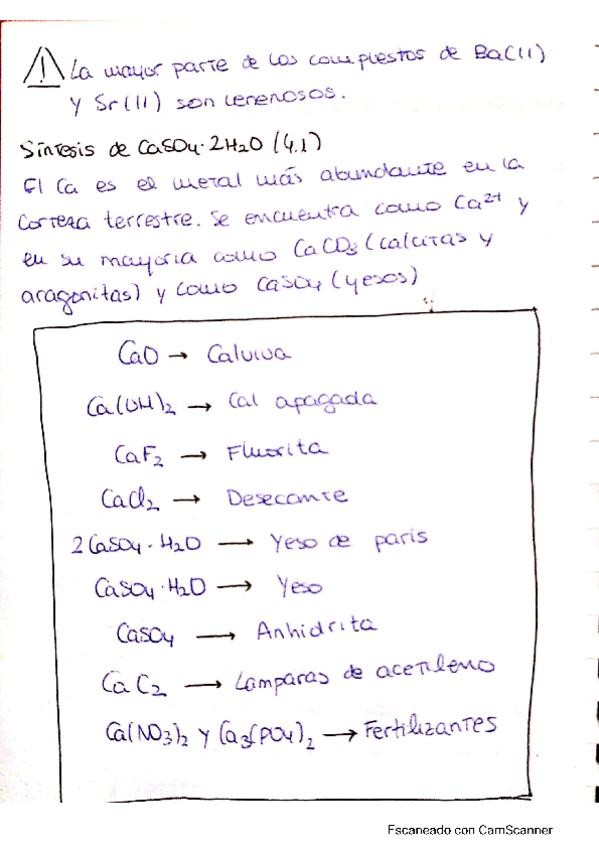 ! La mayor parte de los compuestos de Ba(II)
y Sr(II) son venenosos.
Síntesis de CaSO₄·2H₂O (4.1)
El Ca es el metal más abundante en la
corteza terrestre. Se encuentra como Ca²⁺ y
en su mayoria como CaCO₃ (calcitas y
aragonitas) y como CaSO₄ (yesos)
CaO → Calviva
Ca(OH)₂ → Cal apagada
CaF₂ → Fluorita
CaCl₂ → Desecante
2CaSO₄·H₂O → Yeso de paris
CaSO₄·H₂O → Yeso
CaSO₄ → Anhidrita
CaC₂ → Lamparas de acetileno
Ca(NO₃)₂ y Ca₃(PO₄)₂ → Fertilizantes
Escaneado con CamScanner